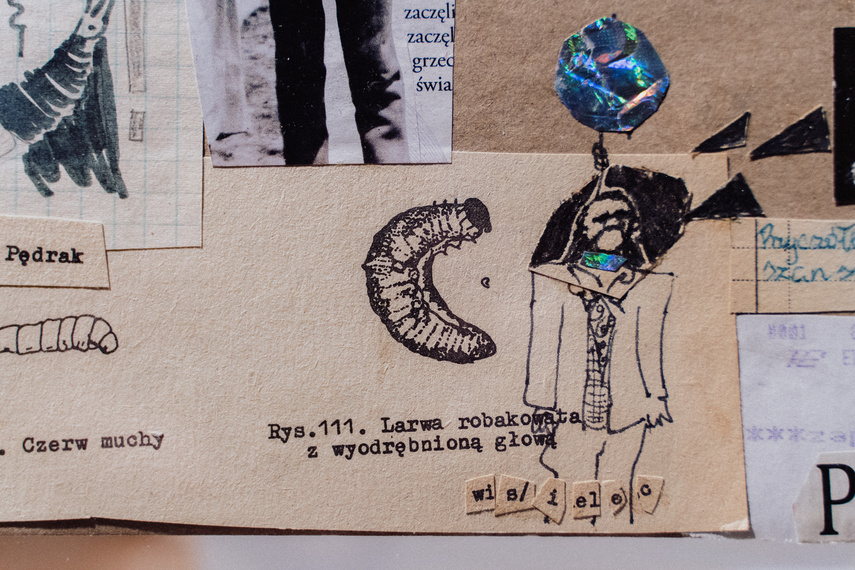 zaczęli
zaczęł
grzec
świa
Pędrak
. Czerw muchy
Rys.111. Larwa robakowata
z wyodrębnioną głową
wis/ielec
P